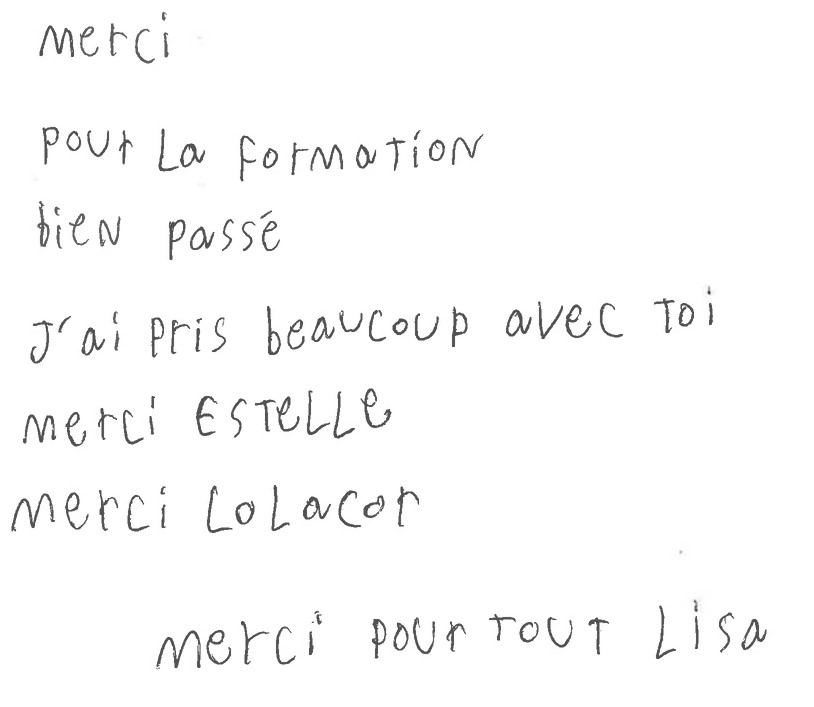 merci
pour La formation
bien passé
J'ai pris beaucoup avec toi
merci ESTELLE
merci LoLacor
merci pour TOUT Lisa